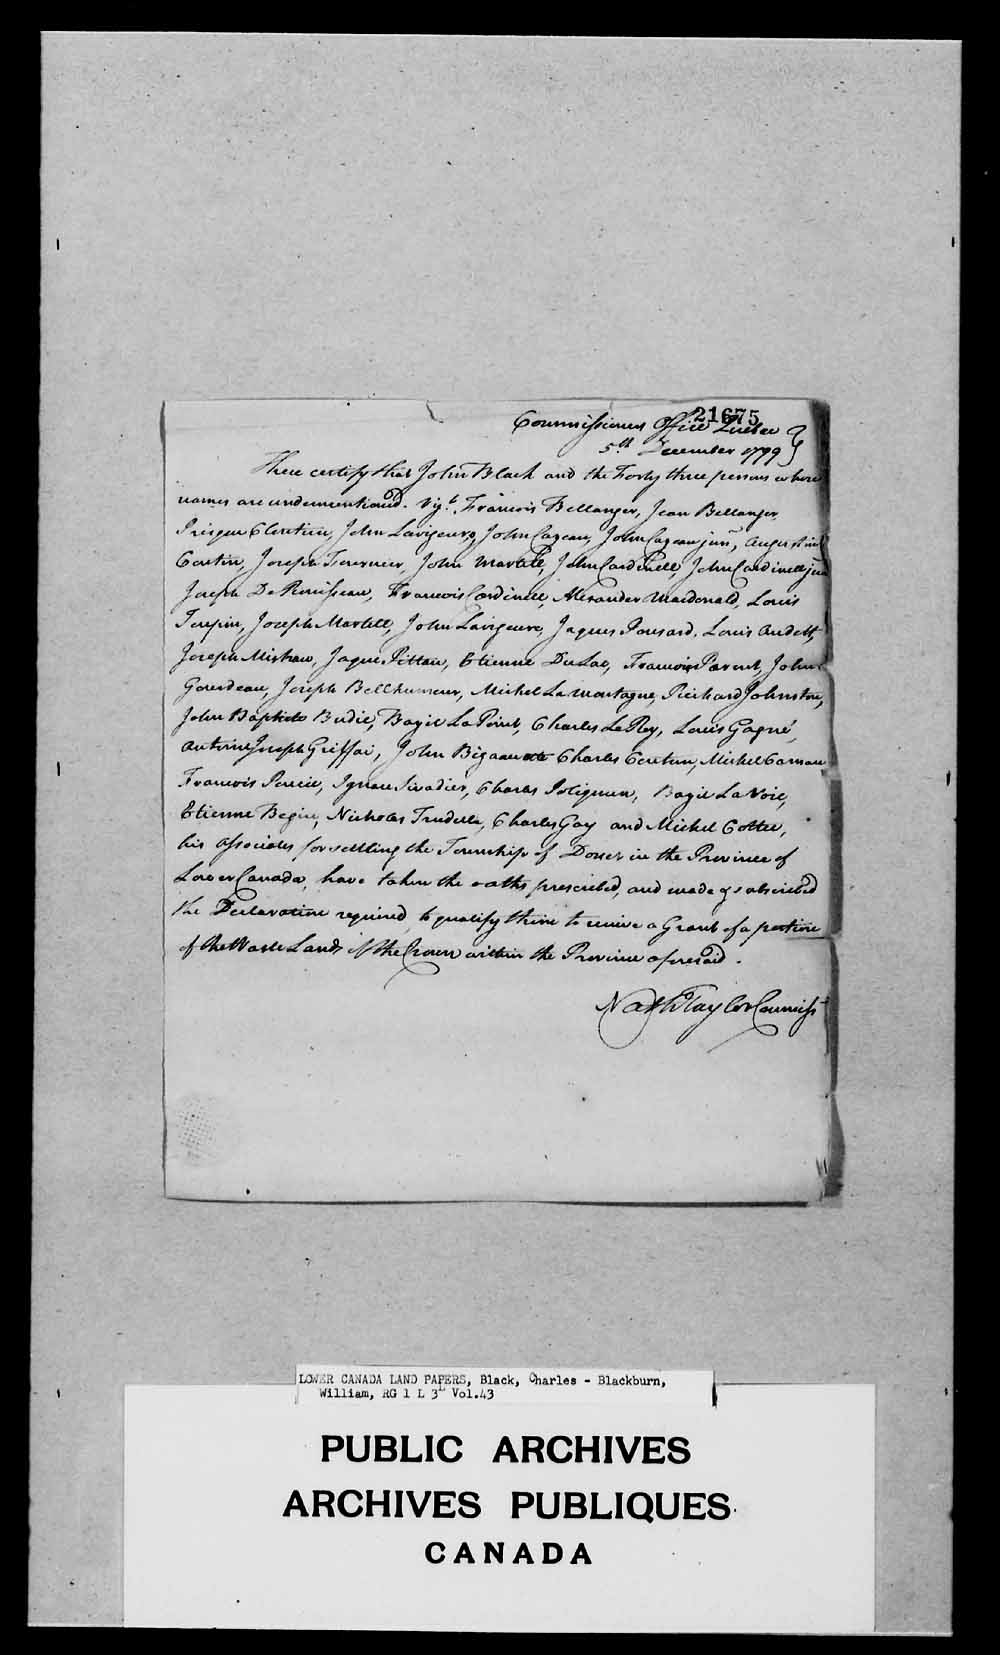 21675
Commissioners Office Quebec
5th December 1799
These certify that John Black and the Forty three persons whose
names are undermentioned. Vizt. Francois Bellanger, Jean Bellanger
Cloutier, John Lavigeure, John Cazeau, John Cazeau junr, Augustin
Coutin, Joseph Tournier, John Martell, John Cardinell, John Cardinell junr
Joseph De Rousseau, Francois Cardinell, Alexander Macdonald, Louis
Turpin, Joseph Martell, John Lavigeure, Jaques Ponsard, Louis Audett,
Joseph Mishaw, Jaques Pittau, Etienne DuLac, Francois Parent, John
Gourdeau, Joseph Bellhumeur, Michel La Montagne, Richard Johnston,
John Baptiste Budie, Bazil La Point, Charles LeRoy, Louis Gagné,
Antoine Joseph Griffai, John Charles Coutin, Michel
Francois Ignace Sivadier, Charles Bazil La Voie,
Etienne Begin, Nicholas Trudelle, Charles Gay and Michel Cottee,
his Associates for settling the Township of Dorset in the Province of
Lower Canada, have taken the oaths prescribed, and made & subscribed
the Declaration required to qualify them to receive a Grant of a portion
of the Waste Lands of the Crown within the Province aforesaid.
Nathl Taylor Commisst
LOWER CANADA LAND PAPERS, Black, Charles - Blackburn,
William, RG 1 L 3L Vol.43
PUBLIC ARCHIVES
ARCHIVES PUBLIQUES
CANADA